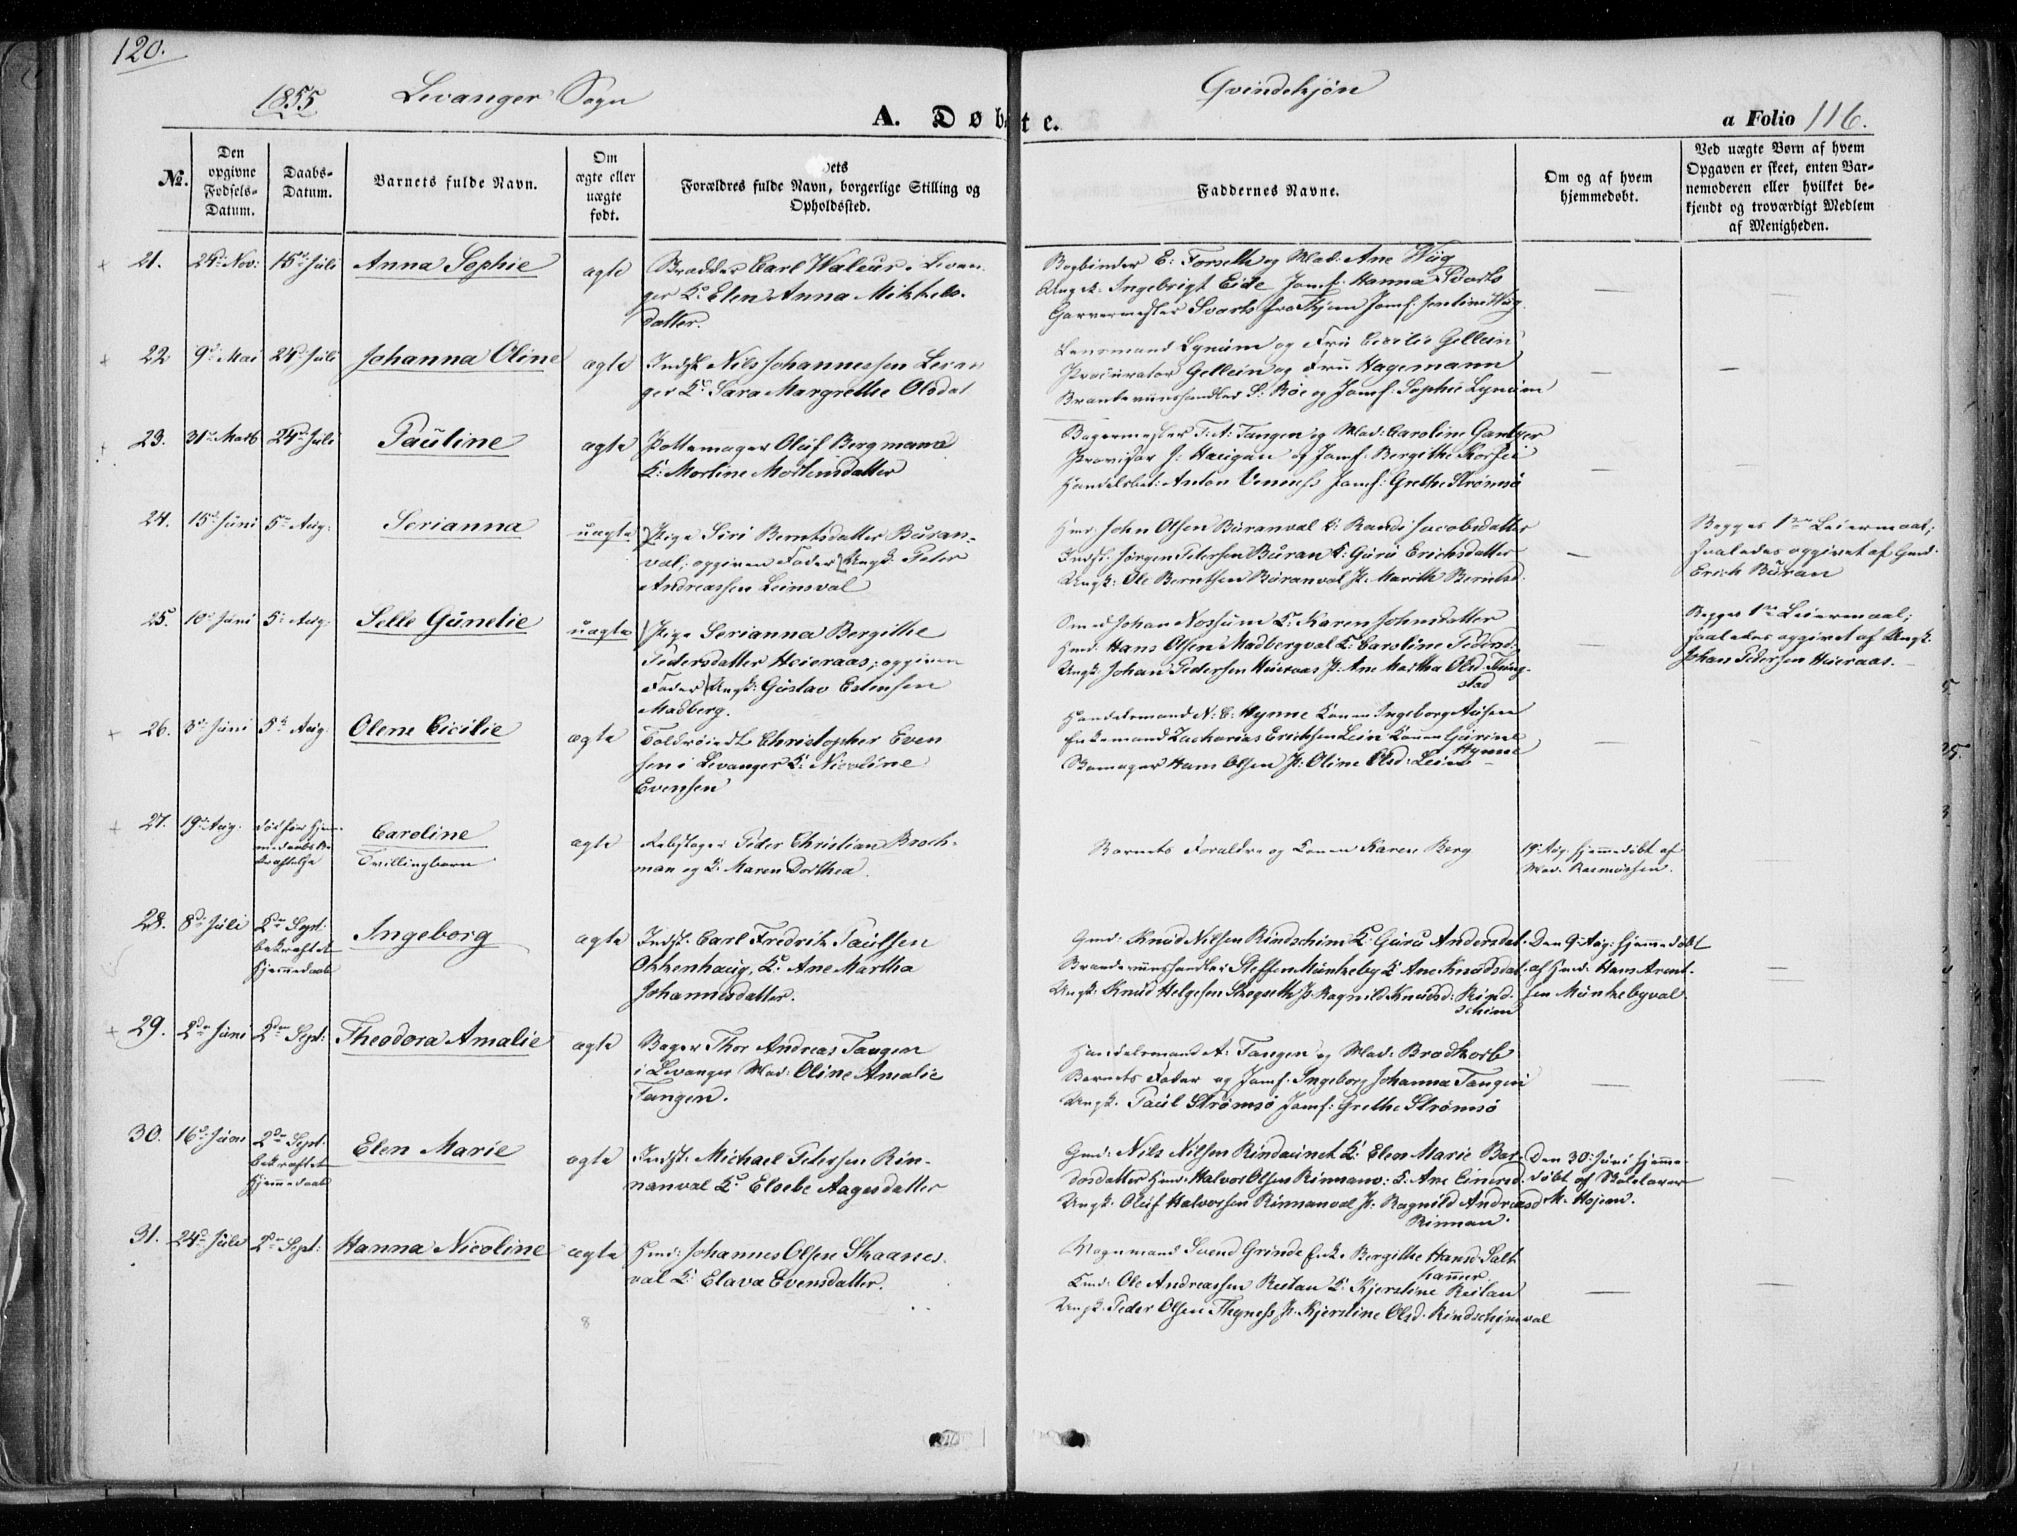 120.
1855 Levanger Sogn Qvindekjøn
A. Døbte. a Folio 116.
№.
Den opgivne Fødsels-Datum.
Daabs-Datum.
Barnets fulde Navn.
Om ægte eller uægte født.
Forældres fulde Navn, borgerlige Stilling og Opholdssted.
Faddernes Navne.
Om og af hvem hjemmedøbt.
Ved uægte Børn af hvem
Opgaven er skeet, enten Bar-
nemoderen eller hvilket be-
kjendt og troværdigt Medlem
af Menigheden.
21. 24de Nov: 15de Juli Anna Sophie ægte
Carl Waleur i Levan-
ger K: Elen Anna Mikkels-
datter.
Bogbinder E: Forseth og Mad: Ane Wüg
Ungk: Ingebrigt Eide Jomf: Hanna Svarts
Garvermester Svarts Jomf:
22 9de Mai 24de Juli Johanna Oline ægte
Indst Nils Johannessen Levan
ger K: Sara Margrethe Olsdat
Lensmand Lynum og Fru Cicilie Gellein
Procurator Gellein og Fru Hagemann
S: Röe og Jomf: Sophie Lynum
23. 31te Marts 24de Juli Pauline ægte
Pottemager Oluf Bergmann
K: Martine Mortensdatter
Bagermester T: A: Tangen og Mad: Caroline Gantzer
Provisor J: Haugan og Jomf: Bergithe
Handelsbet: Anton Jomf: Grethe Strömsö
24. 15de Juni 5te Aug: Serianna uægte
Pige Siri Berntsdatter Buran-
val; opgiven Fader Ungk: Peter
Andreassen Leinsval
Hmd: John Olsen Buranval K: Randi Jacobsdatter
Indst: Jörgen Petersen Buran K: Guru Erichsdatter
Ungk: Ole Berntsen Buranval P: Marith Berntsd:
Begges 1ste Leiermaal;
saaledes opgivet af Gmd:
Erich Buran
25. 10de Juni 5te Aug. Selle Gunelie uægte
Pige Serianna Bergithe
Pedersdatter Heieraas; opgiven
Fader Ungk: Gustav Estensen
Madberg.
Smed Johan K: Karen Johnsdatter
Hmd: Hans Olsen Madbergval K: Caroline Pedersd:
Ungk: Johan Pedersen Heieraas P: Ane Martha Olsd:
stad
Begges 1ste Leiermaal;
saaledes opgivet af Ungk:
Johan Pedersen Heieraas.
26. 3de Juni 5te Aug Olene Cicilie ægte
Christopher Even
sen i Levanger K: Nicoline
Evensen
Handelsmand N: C: Hynne Konen Ingeborg
Enkemand Zacharias Ericksen Lein Konen Gurine
Hynne
Hans Olsen P: Oline Olsd: Leins
27. 19de Aug. Caroline ægte
død før Hjem-
medaabs Be-
kræftelse
Tvillingbarn
Rebslager Peder Christian Brock-
man og K: Maren Dorthea.
Barnets Forældre og Konen Karen Berg
19 Aug. hjemmedøbt af
Mad: Rasmussen.
28. 8de Juli 2den Sept:
bekræftet
Hjemmedaab
Ingeborg ægte
Indst: Carl Fredrik Paulsen
Okkenhaug, K: Ane Martha
Johannesdatter.
Gmd: Knud Nilsen Rindschim K: Guru Andersdat:
Steffen Munkeby K: Ane Knudsdat:
Ungk: Knud Helgesen Skogseth P: Ragnild Knudsd: Rind-
schim
Den 9 Aug: hjemmedøbt
af Hmd: Hans Arent-
sen Munkebyval
29. 2den Juni 2den Sept: Theodora Amalie ægte
Bager Thor Andreas Tangen
i Levanger Mad: Oline Amalie
Tangen.
Handelsmand A: Tangen og Mad: Brodkorb
Barnets Fader og Jomf: Ingeborg Johanna Tangen
Ungk. Paul Strömsö Jomf: Grethe Strömsö
30. 16de Juni 2den Sept:
bekræftet
Hjemmedaab
Elen Marie ægte
Indst: Michael Petersen Rin-
nanval K: Elsebe Aagesdatter
Gmd: Nils Nilsen K: Elen Marie Bar-
dosdatter Hmd: Halvor Olsen Rinnanv: K: Ane Einersd:
Ungk: Oluf Halvorsen Rinnanval P: Ragnild Andreasd
Rinnan.
Den 30 Juni hjemme-
døbt af Skolelærer
M. Hojem.
31. 24de Juli 2den Sept: Hanna Nicoline ægte
Hmd: Johannes Olsen Skaanes-
val K: Elava Evensdatter.
Vognmand Svend Grinde Enke Bergithe Hansd Salt
hamer
Ole Andreassen Reitan K: Kjerstine Reitan
Ungk: Peder Olsen P: Kjerstine Olsd: Rindschimval
8